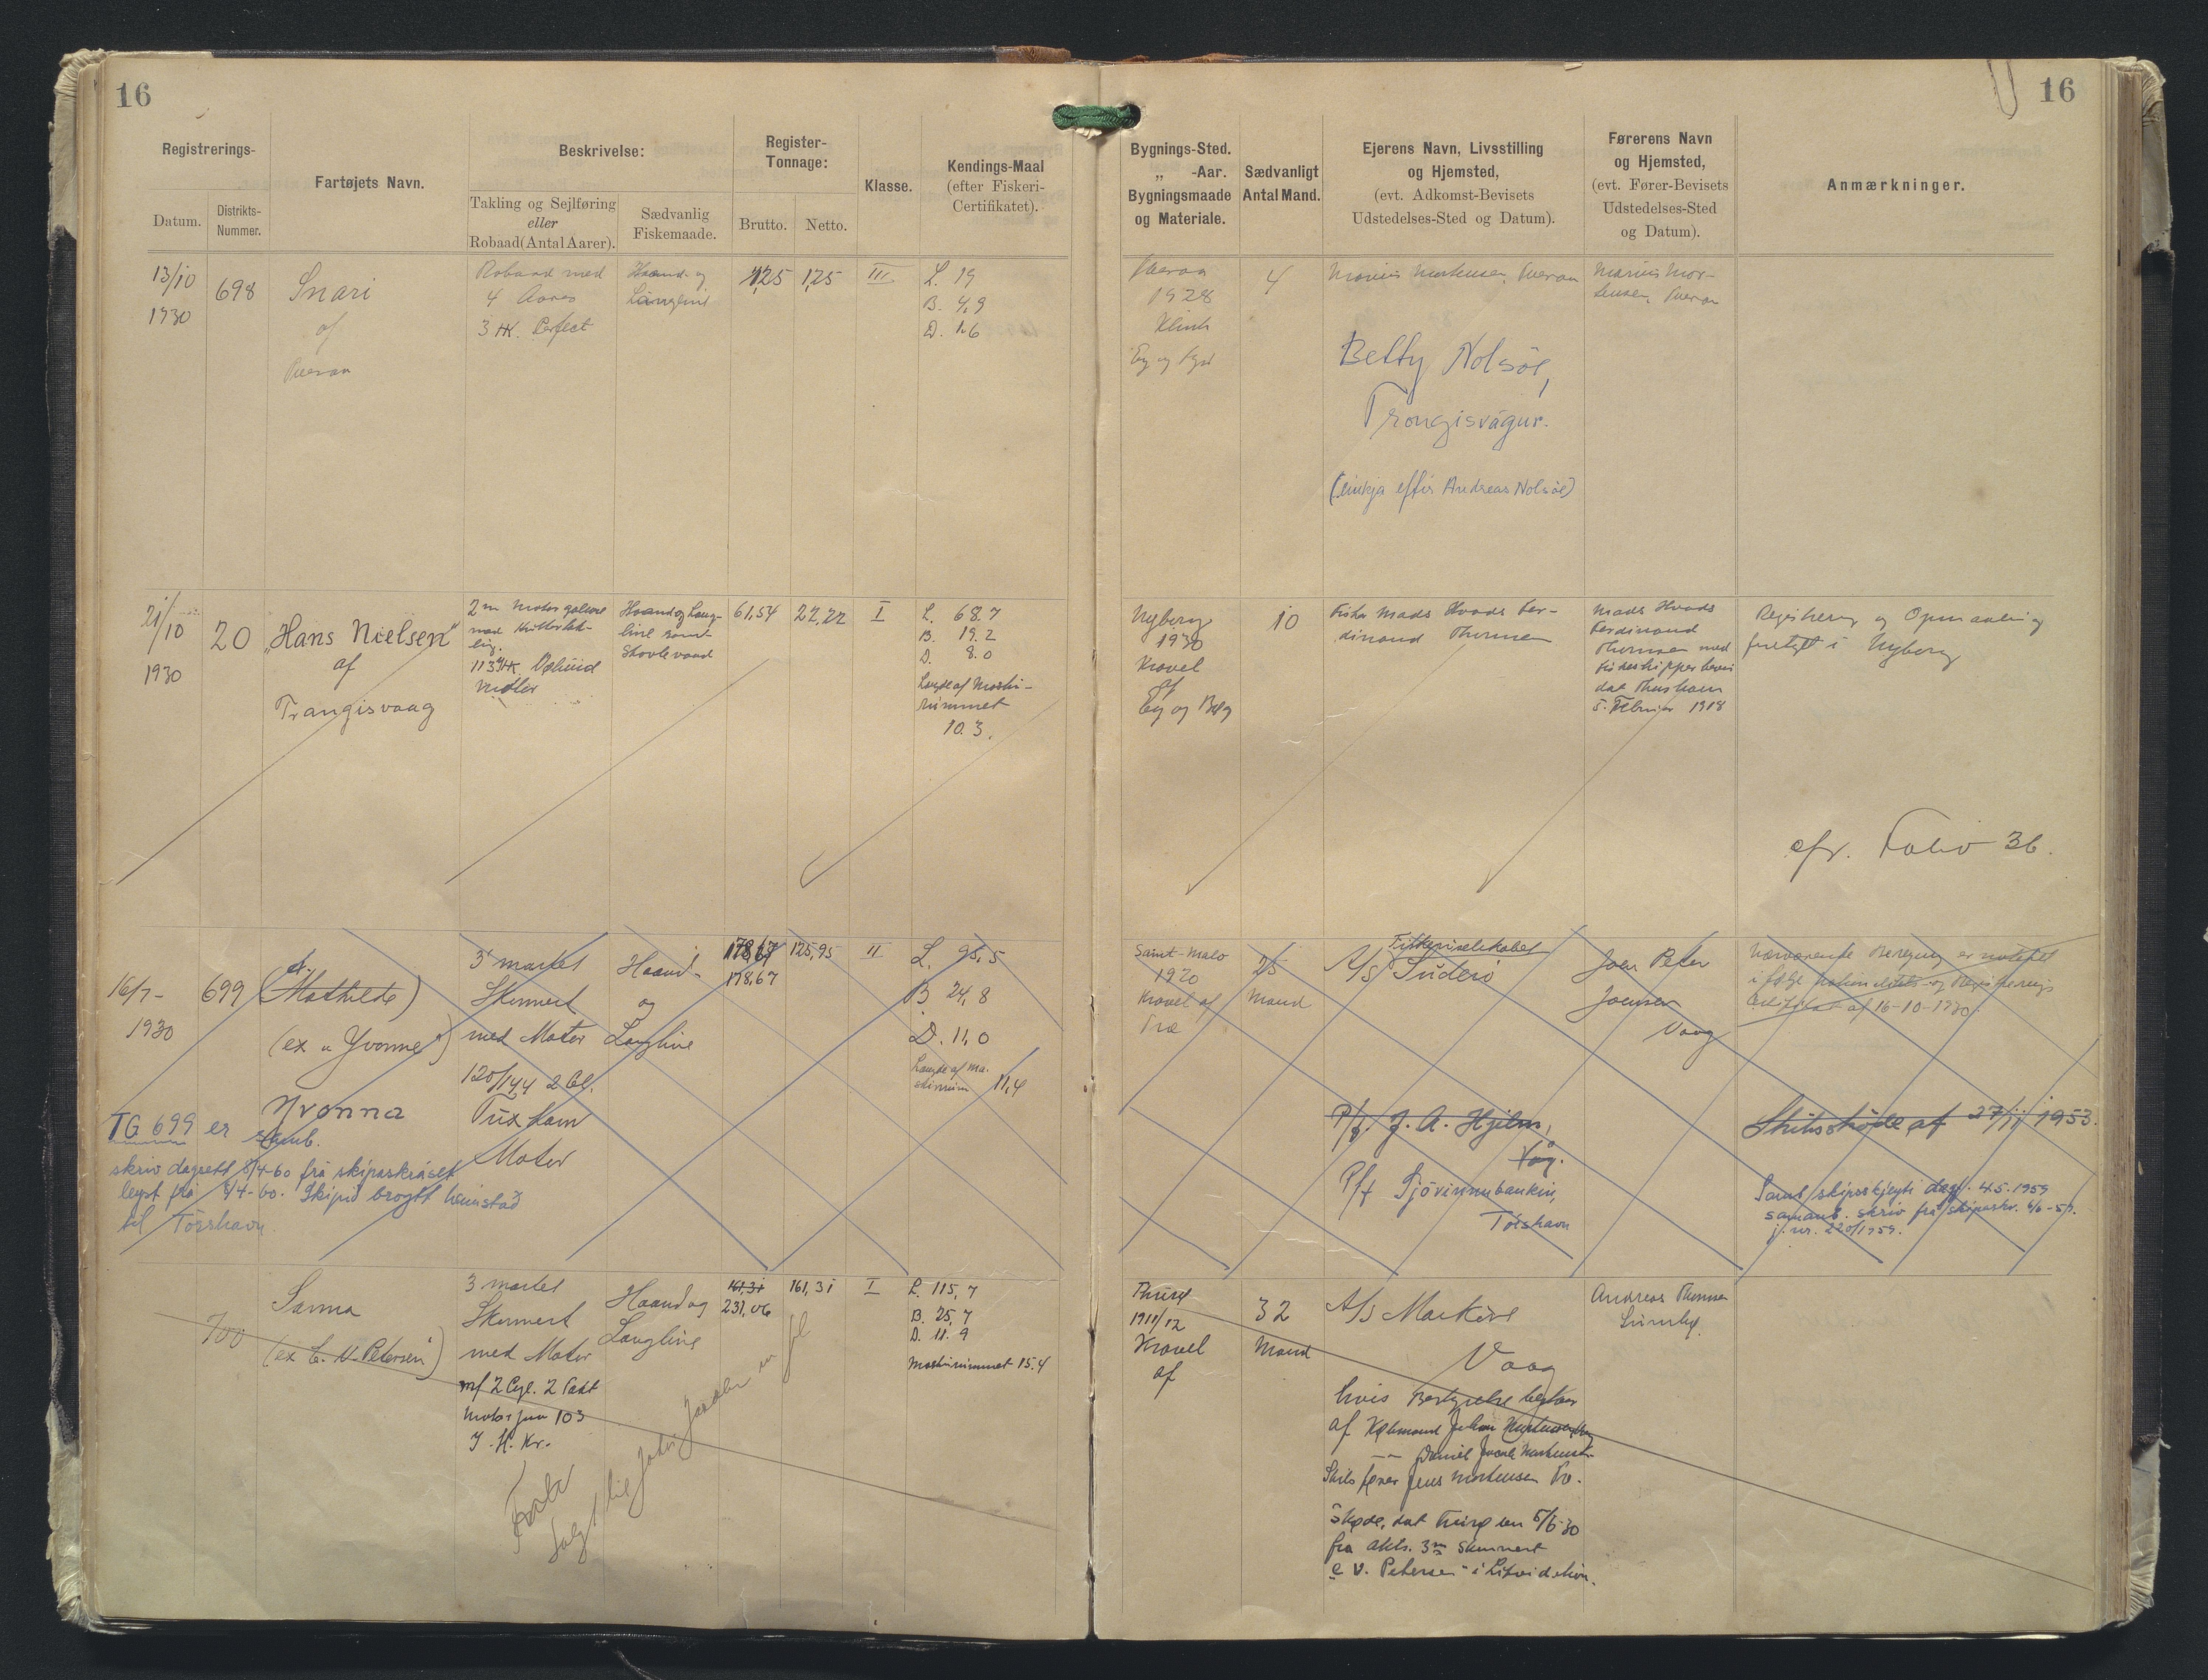 16
16
Registrerings-
Datum.
Distrikts-
Nummer.
Fartøjets Navn.
Beskrivelse:
Takling og Sejlføring
eller
Robaad (Antal Aarer).
Sædvanlig
Fiskemaade.
Register-
Tonnage:
Brutto.
Netto.
Klasse.
Kendings-Maal
(efter Fiskeri-
Certifikatet).
Bygnings-Sted.
„ -Aar.
Bygningsmaade
og Materiale.
Sædvanligt
Antal Mand.
Ejerens Navn, Livsstilling
og Hjemsted,
(evt. Adkomst-Bevisets
Udstedelses-Sted og Datum).
Førerens Navn
og Hjemsted,
(evt. Fører-Bevisets
Udstedelses-Sted
og Datum).
Anmærkninger.
13/10
1930
698
Snari
af
Tveraa
Robaad med
4 Aarer
3 HK. Perfect
Haand- og
Langline
1,25
1,25
III
L. 19
B. 4,9
D. 1,6
Tveraa
1928
Klink
Eg og Fyr
4
Marius Mortensen, Tveraa
Betty Nolsöe,
Trongisvágur.
(einkja eftir Andreas Nolsöe)
Marius Mor-
tensen, Tveraa
21/10
1930
20
„Hans Nielsen"
af
Trangisvaag
2 m Motorgalease
113 HK. Vølund
Motor
Haand og Lang-
line samt
Skovlevaad
61,54
22,22
I
L. 68.7
B. 19.2
D. 8.0
Længde af Maski-
rummet
10.3.
Nyborg
1930
Kravel
af
Eg og Bøg
10
Fisker Mads Hvads Fer-
dinand Thomsen
Mads Hvads
Ferdinand
Thomsen med
Fiskeskipperbevis
dat Thorshavn
5. Februar 1918
Registrering og Opmaaling
foretaget i Nyborg
cfr. Folio 36.
16/7-
1930
699
(Mathilde)
(ex „Yvonne")
Yvonna
3 mastet
Skonnert
med Motor
120/144 2 Cl.
Tuxham
Motor
Haand-
og
Langline
178,67
178,67
125,95
II
L. 95,5
B 24,8
D. 11,0
Længde af Ma-
skinrum 11,4
TG 699 er samb.
skriv dagsett 8/4-60 frá skipaskráset
leyst frá 8/4-60. Skipið broytt heimstað
til Tórshavn.
Saint-Malo
1920
Kravel af
Træ
25
Mand
Fiskeriselskabet
A/S Suderø
P/f. J. A. Hjelm,
Våg.
P/f Sjóvinnubankin,
Tórshavn
Joen Peter
Joensen
Vaag
Nærværende Beregning er noteret
i følge Nationalitets- og Registrerings
Certifikat af 16-10-1930.
Skibsskøde af 27/11 1953.
Samb. skipsskjeyti dagf. 4.5.1959
samanb. skriv frá skipaskr. 4/6-59.
j.nr. 220/1959.
700
Sanna
(ex C. V. Petersen")
3 mastet
Skonnert
med Motor
m/ 2 Cyl. 2 Takt
Motor paa 103
I. H. Kr.
Haand og
Langline
161,31
231,06
161,31
I
L. 115,7
B. 25,7
D. 11.9
Maskinrummet 15.4
Thurø
1911/12
Kravel
af
32
Mand
A/S Maskine
Vaag
hvis Bestyrelse bestaar
af Købmand Johan Mortensen,
— — Daniel Jacob Mortensen
Skibsfører Jens Mortensen
Skøde, dat Thurø den 5/6-30
fra Akts. 3m Skonnert
C. V. Petersen" i Likvidation.
Andreas Thomsen
Sumbø.